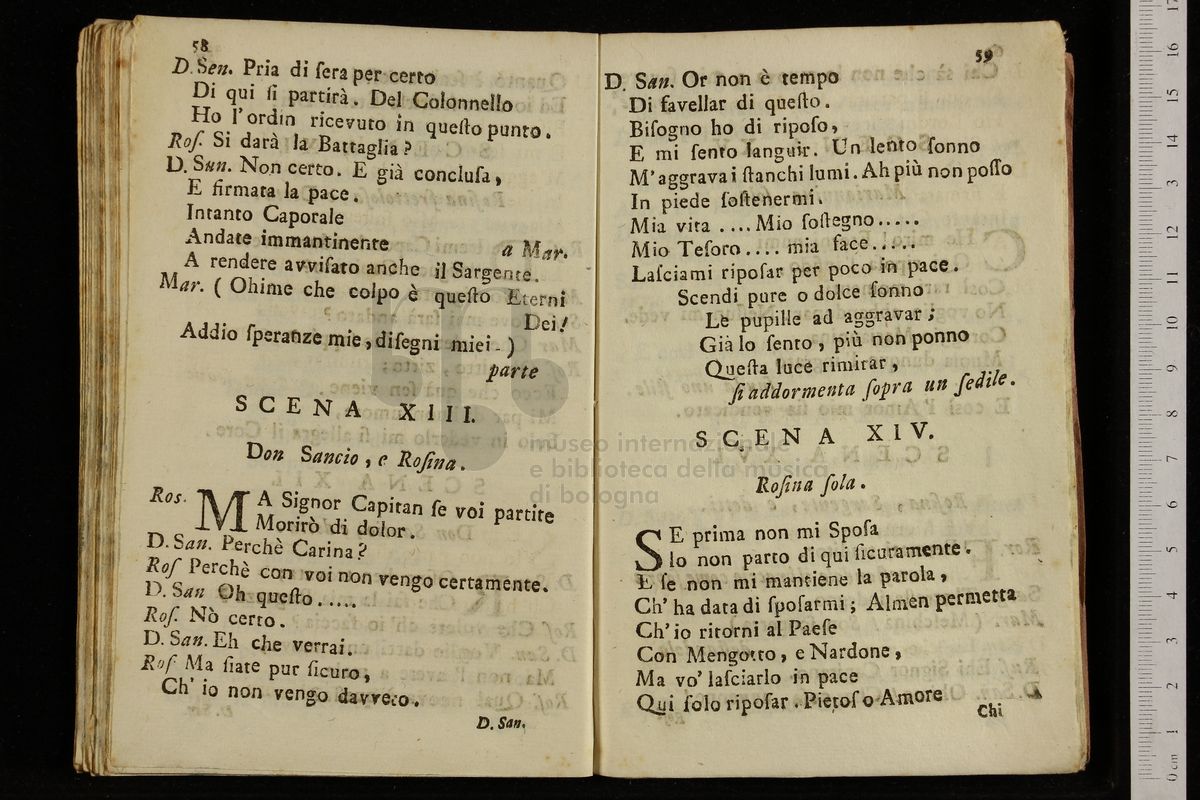 58
D. Sen. Pria di ſera per certo
Di qui ſi partirà. Del Colonnello
Ho l'ordin ricevuto in queſto punto.
Roſ. Si darà la Battaglia?
D. San. Non certo. E già concluſa,
E firmata la pace.
Intanto Caporale
Andate immantinente a Mar.
A rendere avviſato anche il Sargente.
Mar. ( Ohime che colpo è queſto Eterni
Dei!
Addio ſperanze mie, diſegni miei. )
parte
SCENA XIII.
Don Sancio, e Roſina.
Ros. MA Signor Capitan ſe voi partite
Morirò di dolor.
D. San. Perchè Carina?
Roſ Perchè con voi non vengo certamente.
D. San Oh queſto.....
Roſ. Nò certo.
D. San. Eh che verrai.
Roſ Ma ſiate pur ſicuro,
Ch' io non vengo davvero.
D. San.
59
D. San. Or non è tempo
Di favellar di queſto.
Biſogno ho di ripoſo,
E mi ſento languir. Un lento ſonno
M'aggrava i ſtanchi lumi. Ah più non poſſo
In piede ſoſtenermi.
Mia vita .... Mio ſoſtegno.....
Mio Teſoro.... mia face......
Laſciami ripoſar per poco in pace.
Scendi pure o dolce ſonno
Le pupille ad aggravar;
Già lo ſento, più non ponno
Queſta luce rimirar,
ſi addormenta ſopra un ſedile.
SCENA XIV.
Roſina ſola.
SE prima non mi Spoſa
Io non parto di qui ſicuramente.
E ſe non mi mantiene la parola,
Ch' ha data di ſpoſarmi; Almen permetta
Ch' io ritorni al Paeſe
Con Mengotto, e Nardone,
Ma vo' laſciarlo in pace
Qui ſolo ripoſar. Pietoſo Amore
Chi
museo internazionale
e biblioteca della musica
di bologna
0 cm 1 2 3 4 5 6 7 8 9 10 11 12 13 14 15 16 17